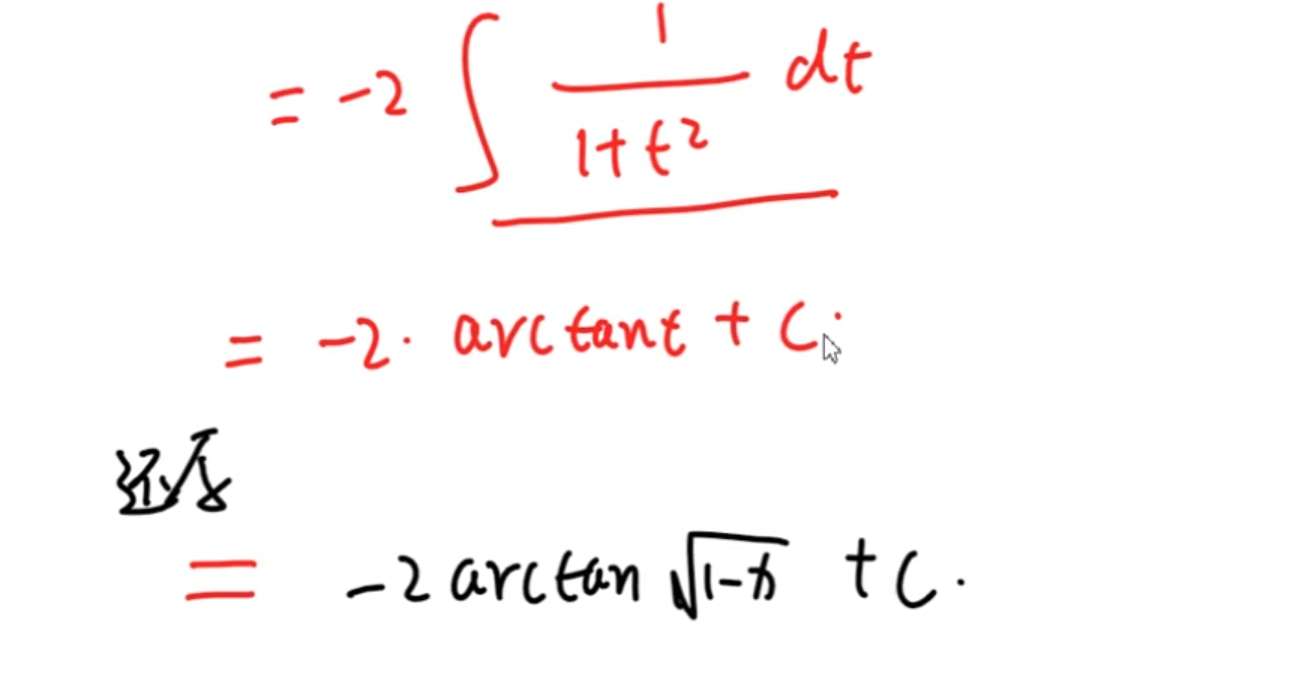 = -2 ∫ 1/(1+t²) dt
= -2 · arctant + C.
还原
= -2 arctan √(1-x) + C.